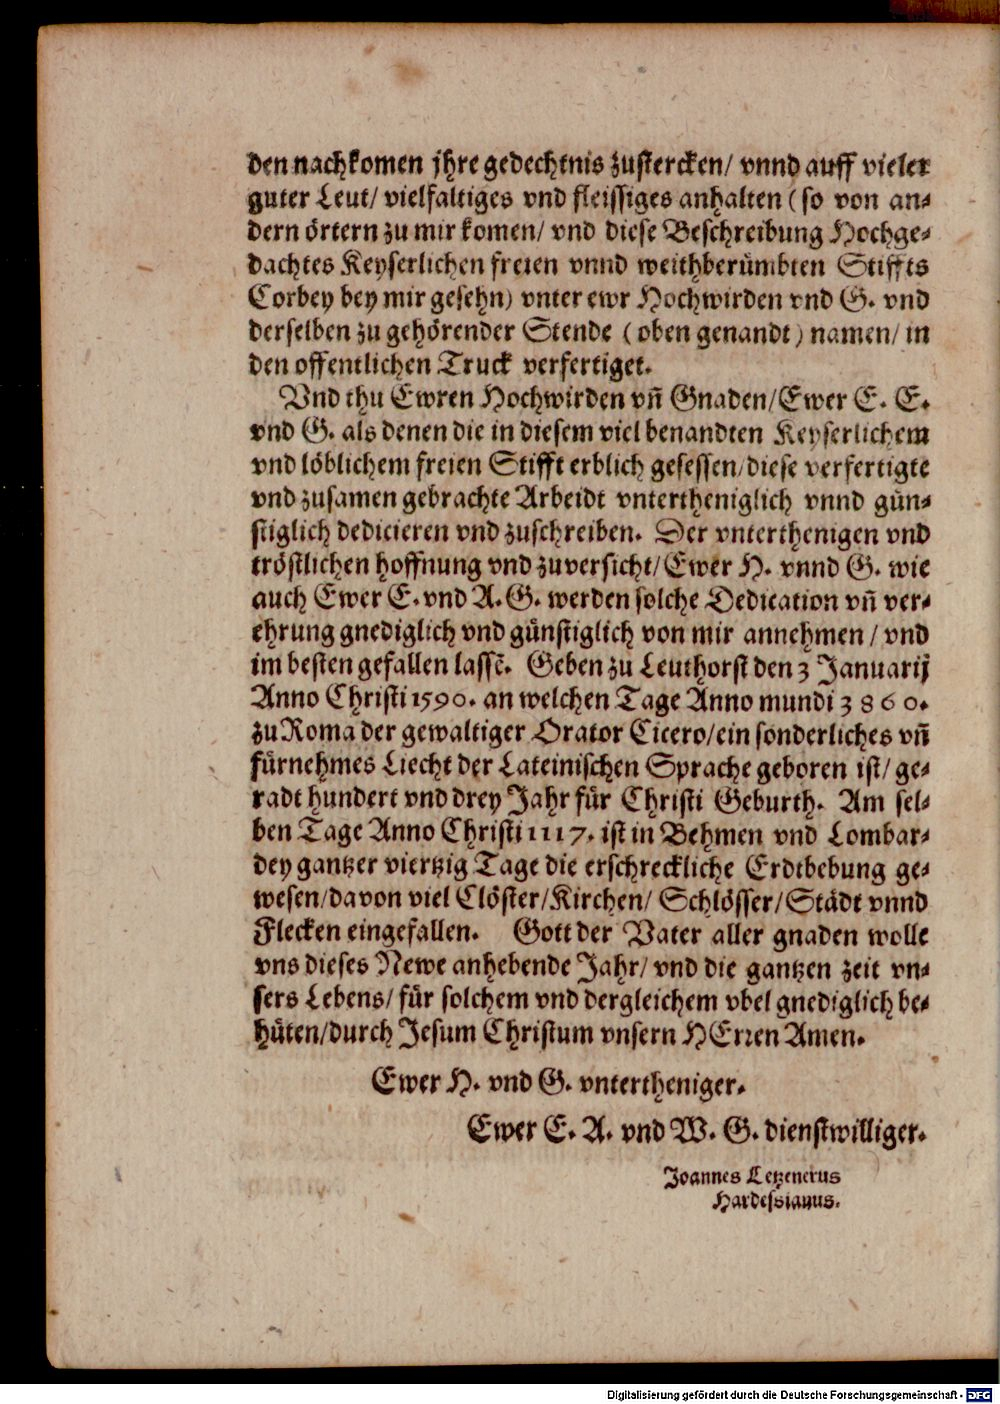 den nachkomen jhre gedechtnis zustercken/ vnnd auff vieler
guter Leut/ vielfaltiges vnd fleissiges anhalten (so von an-
dern örtern zu mir komen/ vnd diese Beschreibung Hochge-
dachtes Keyserlichen freien vnnd weithberümbten Stiffts
Corbey bey mir gesehn) vnter ewr Hochwirden vnd G. vnd
derselben zu gehörender Stende (oben genandt) namen/ in
den offentlichen Truck verfertiget.
Vnd thu Ewren Hochwirden vn̄ Gnaden/Ewer E. E.
vnd G. als denen die in diesem viel benandten Keyserlichem
vnd löblichem freien Stifft erblich gesessen/diese verfertigte
vnd zusamen gebrachte Arbeidt vntertheniglich vnnd gün-
stiglich dedicieren vnd zuschreiben. Der vnterthenigen vnd
tröstlichen hoffnung vnd zuversicht/Ewer H. vnnd G. wie
auch Ewer E. vnd A. G. werden solche Dedication vn̄ ver-
ehrung gnediglich vnd günstiglich von mir annehmen / vnd
im besten gefallen lassē. Geben zu Leuthorst den 3 Januarij
Anno Christi 1590. an welchen Tage Anno mundi 3860.
zu Roma der gewaltiger Orator Cicero/ein sonderliches vn̄
fürnehmes Liecht der Lateinischen Sprache geboren ist/ ge-
radt hundert vnd drey Jahr für Christi Geburth. Am sel-
ben Tage Anno Christi 1117. ist in Behmen vnd Lombar-
dey gantzer viertzig Tage die erschreckliche Erdtbebung ge-
wesen/davon viel Clöster/Kirchen/ Schlösser/Städt vnnd
Flecken eingefallen. Gott der Vater aller gnaden wolle
vns dieses Newe anhebende Jahr/ vnd die gantzen zeit vn-
sers Lebens/ für solchem vnd dergleichem vbel gnediglich be-
hüten/durch Jesum Christum vnsern HErren Amen.
Ewer H. vnd G. vntertheniger.
Ewer E. A. vnd W. G. dienstwilliger.
Joannes Letzenerus
Hardessianus.
Digitalisierung gefördert durch die Deutsche Forschungsgemeinschaft - DFG